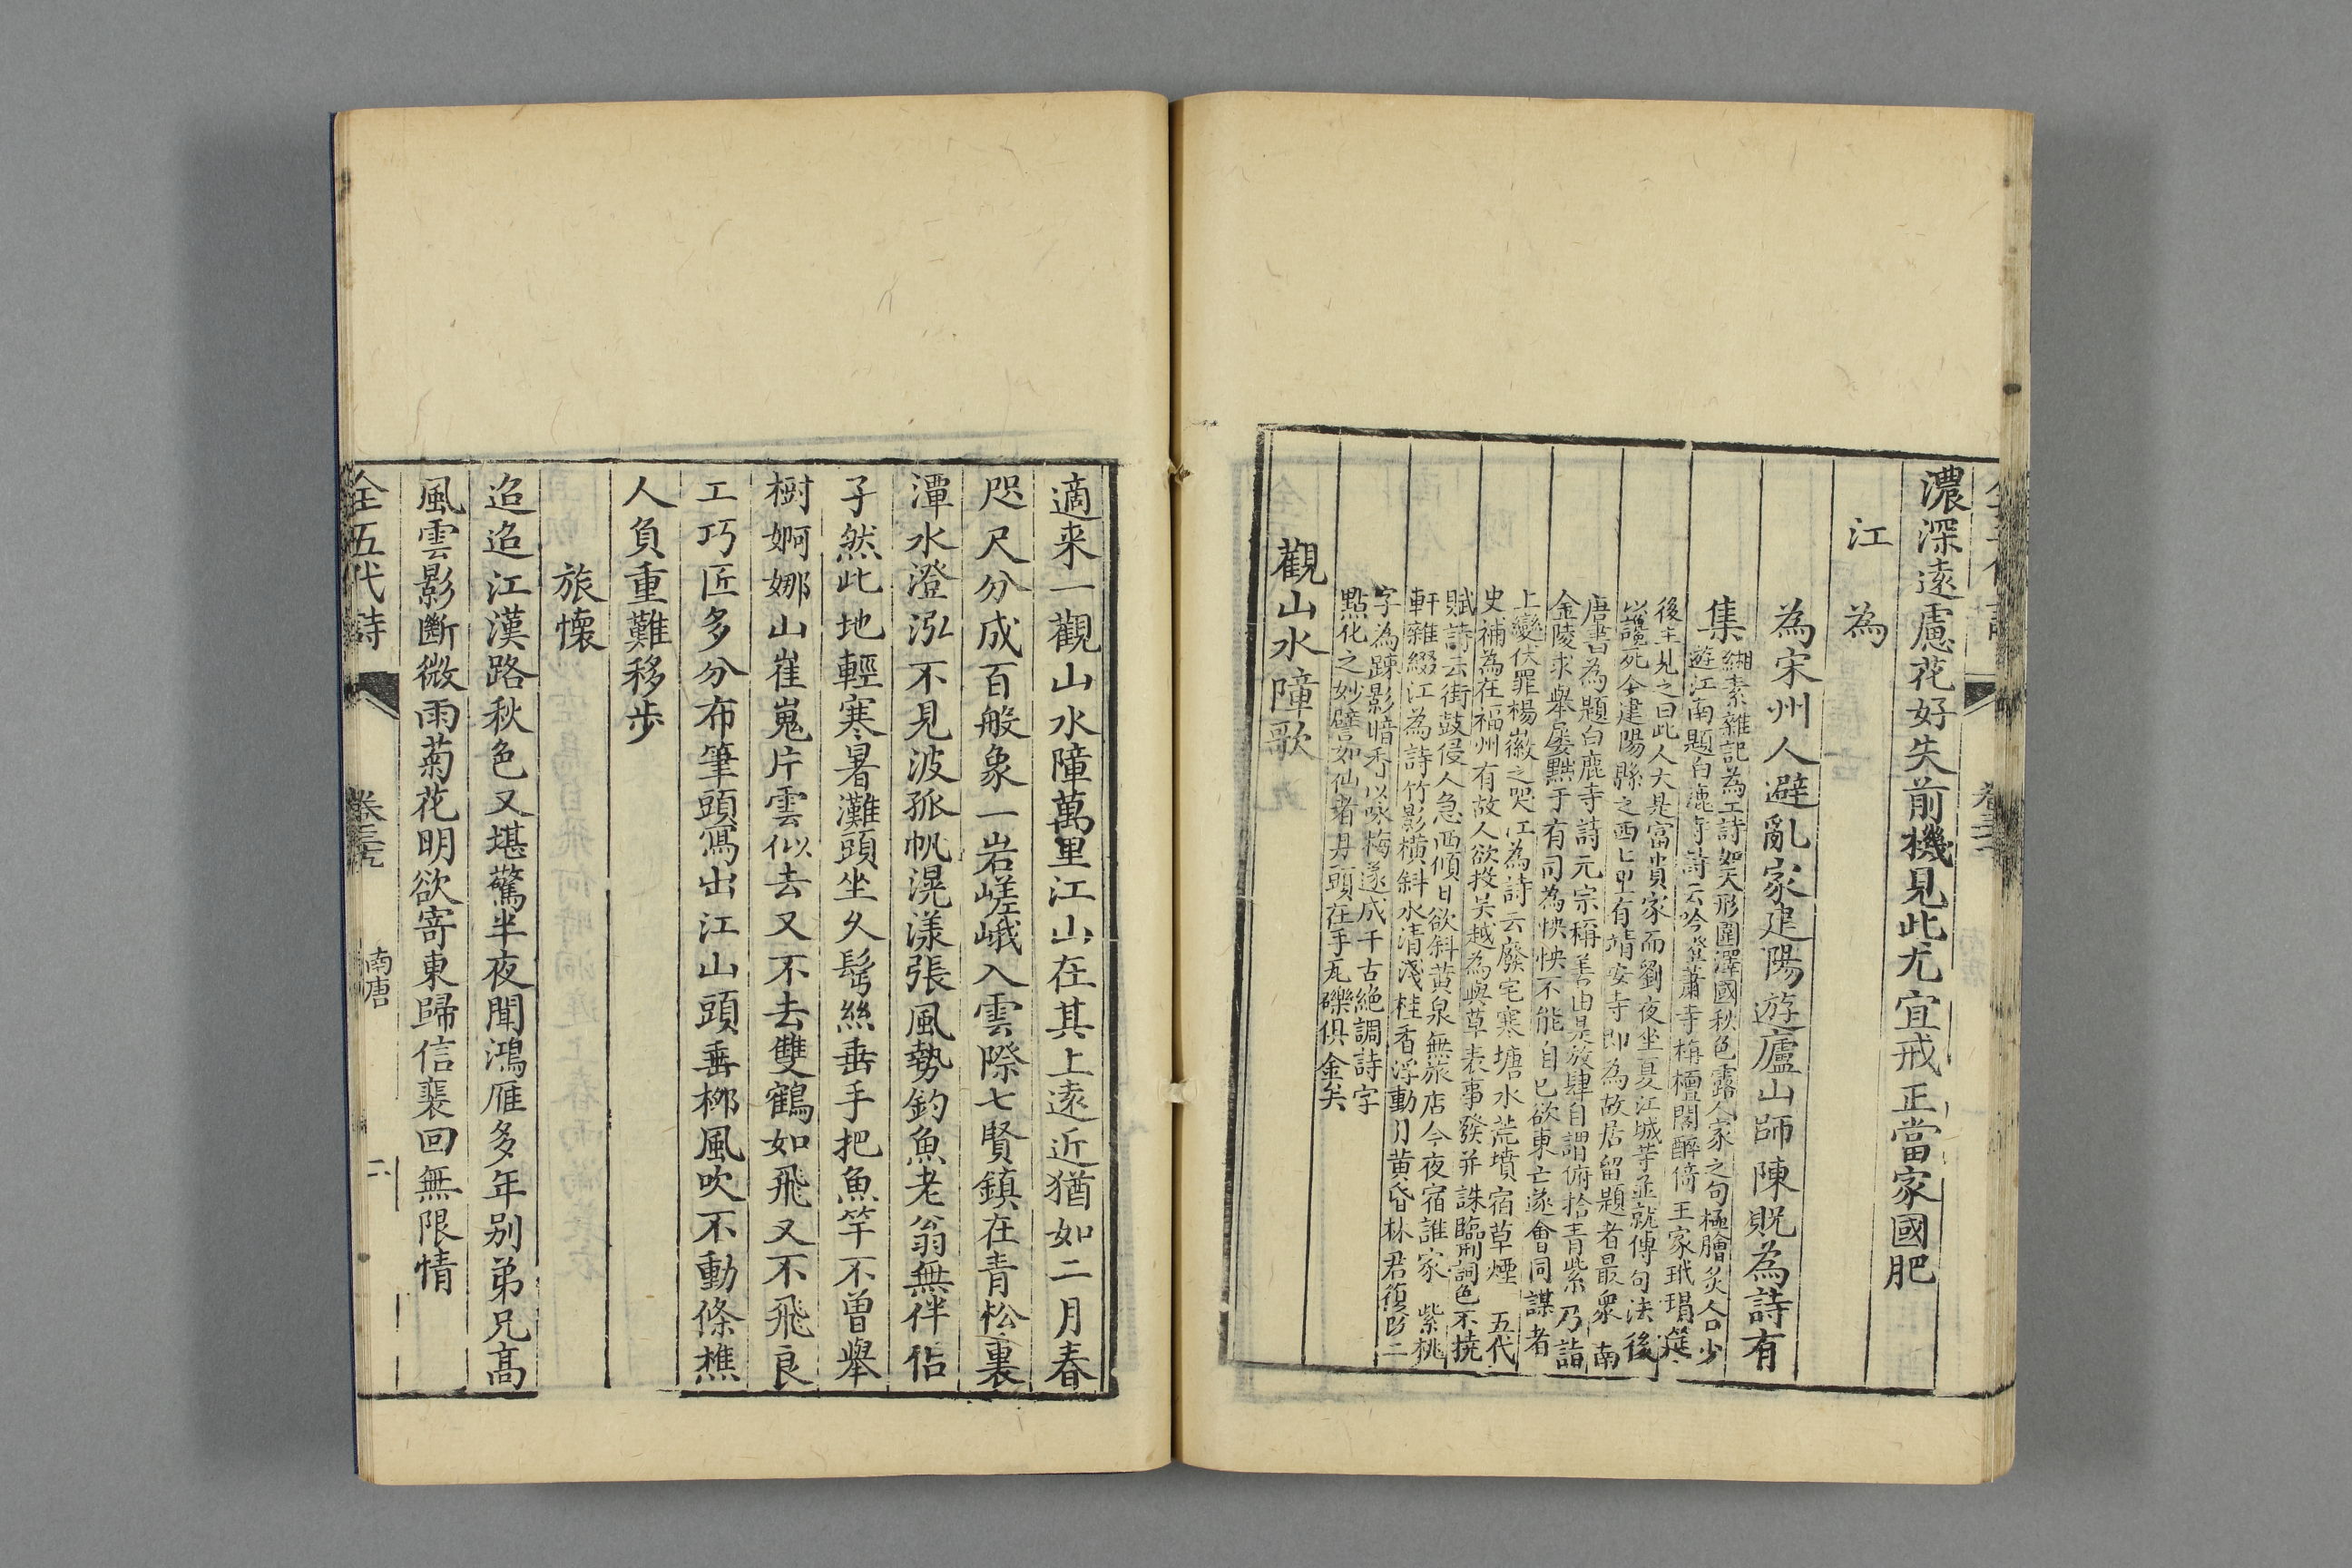 濃深遠慮花好失前機見此尤宜戒正當家國肥
江為
為宋州人避亂家建陽遊廬山師陳貺為詩有
集
緗素雜記為工詩如天形圍澤國秋色露人家之句極膾炙人口少
遊江南題白鹿寺詩云吟登蕭寺栴檀閣醉倚王家玳瑁筵
後主見之曰此人大是富貴家而劉夜坐夏江城等並就傳句法後
以讒死今建陽縣之西七里有靖安寺即為故居留題者最衆 南
唐書為題白鹿寺詩元宗稱善由是放肆自謂俯拾青紫乃詣
金陵求舉屢黜于有司為怏怏不能自已欲東亡遂會同謀者
上變伏罪楊徽之哭江為詩云廢宅寒塘水荒墳宿草煙 五代
史補為在福州有故人欲投吴越為與草表事發并誅臨刑詞色不撓
賦詩云街鼓侵人急西傾日欲斜黄泉無旅店今夜宿誰家 紫桃
軒雜綴江為詩竹影橫斜水清淺桂香浮動月黄昏林君復改二
字為踈影暗香以咏梅遂成千古絶調詩字
點化之妙譬如仙者丹頭在手瓦礫俱金矣
觀山水障歌
適来一觀山水障萬里江山在其上遠近猶如二月春
咫尺分成百般象一岩嵯峨入雲際七賢鎮在青松裏
潭水澄泓不見波孤帆滉漾張風勢釣魚老翁無伴侣
孑然此地輕寒暑灘頭坐久髩絲垂手把魚竿不曽舉
樹婀娜山崔嵬片雲似去又不去雙鶴如飛又不飛良
工巧匠多分布筆頭寫出江山頭垂栁風吹不動條樵
人負重難移步
旅懷
迢迢江漢路秋色又堪驚半夜聞鴻雁多年别弟兄髙
風雲影斷微雨菊花明欲寄東歸信裴回無限情
全五代詩
南唐